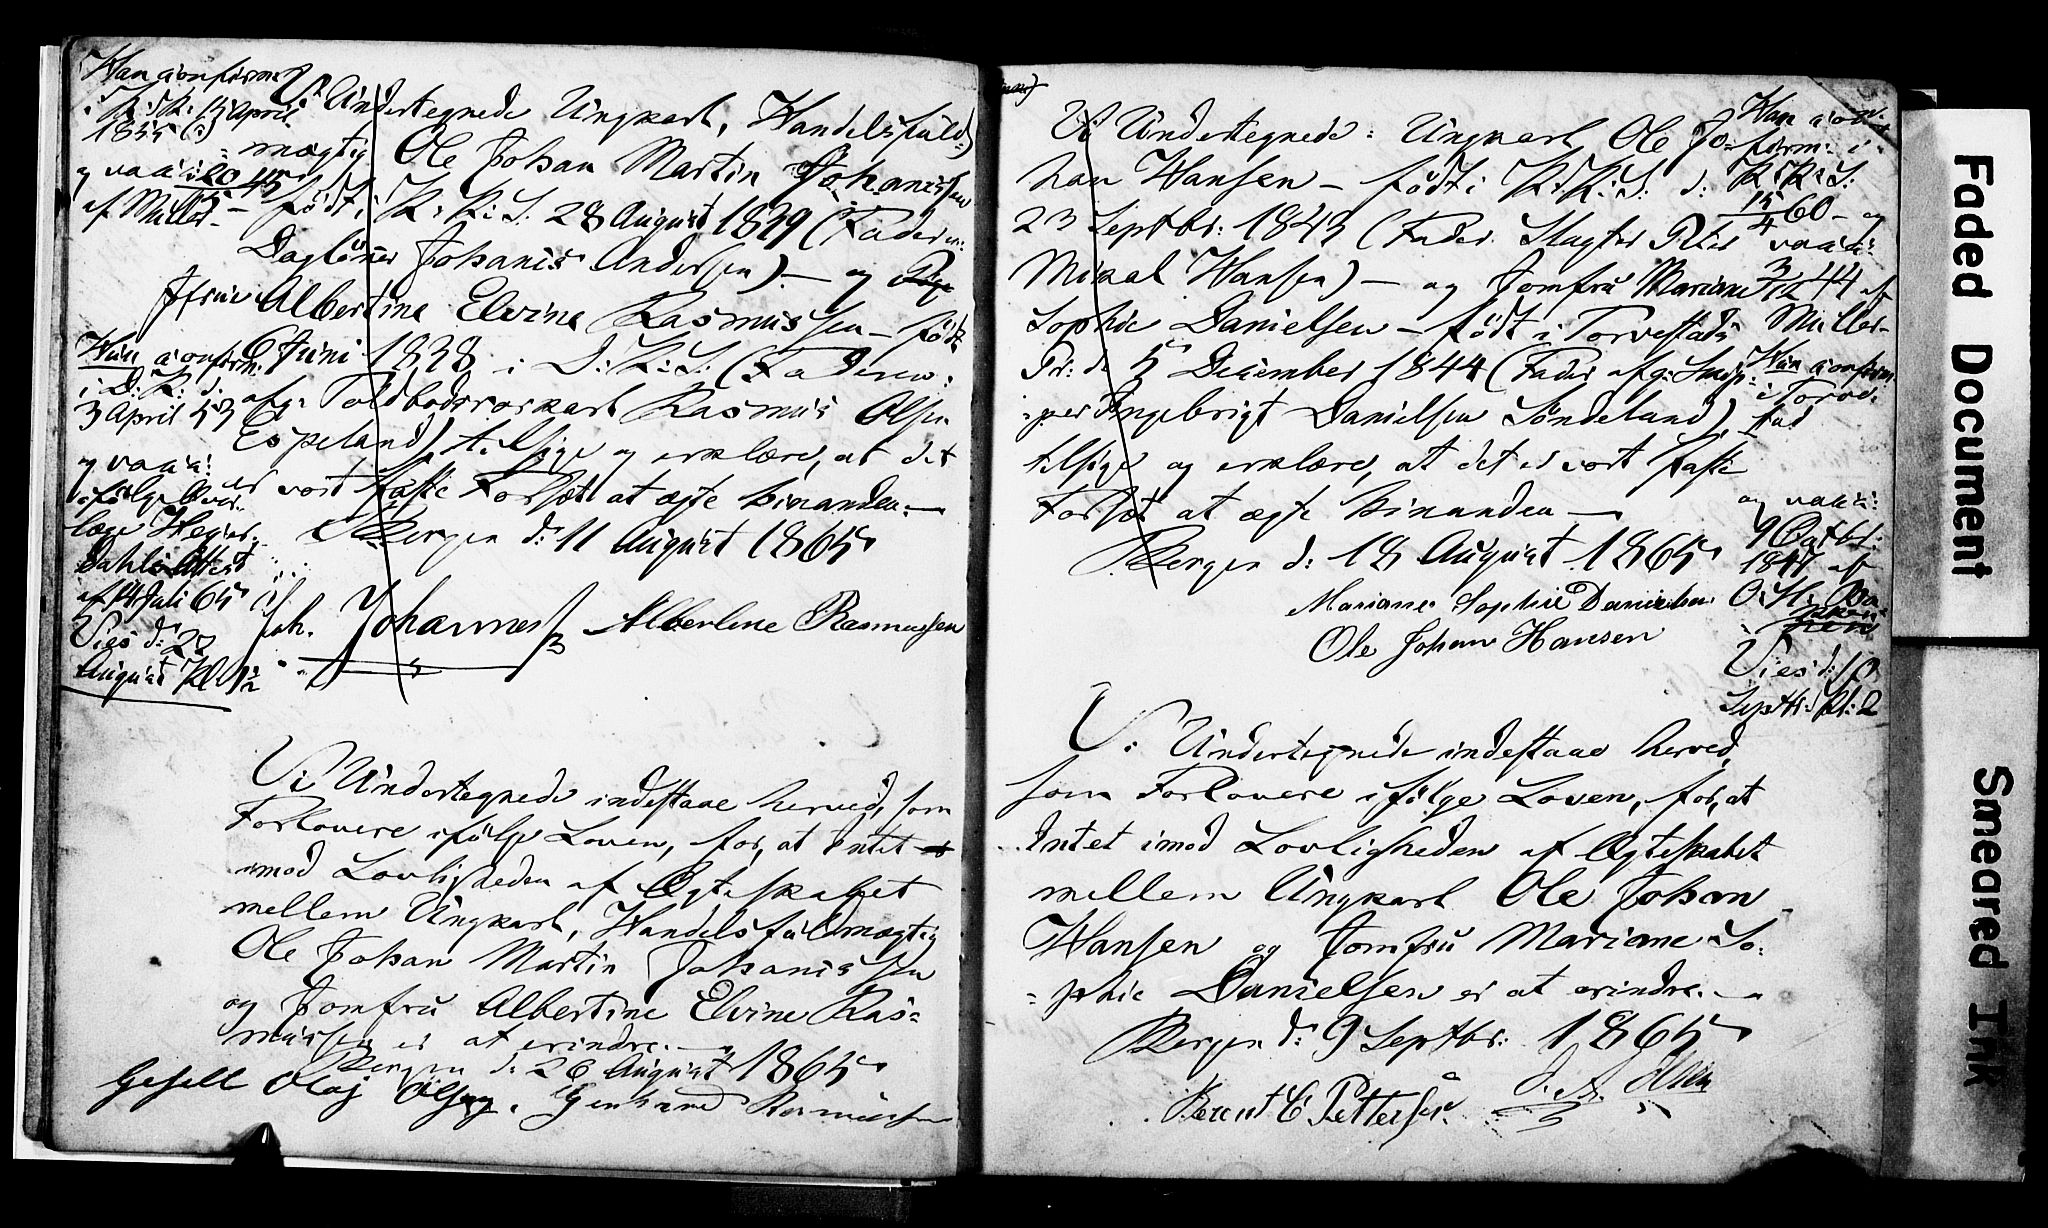 Han confirm:
i K: K: 15 April
1855 (?)
og vacci:
20/5 43
af Müller
Vi Undertegnede Ungkarl, Handelsfuld=
=mægtig Ole Johan Martin Johanissen
– født i K: K: S: 28 August 1839 (Faderen:
Daglønner Johanis Andersen) – og Pige
Jfrue Albertine Elvine Rasmussen – født
6 Juni 1838 i D: K: S: (Faderen:
afg: Toldbodsroskarl Rasmus Olsen
Espeland), tilsige og erklære, at det
er vort faste Forsæt at ægte hinanden. –
Bergen d: 11 August 1865
Hun confirm:
i D: K: d:
3 April 53
og vacci:
ifølge Over=
læge Heiber=
Dahls Attest
af 14 Juli 65
Vies d: 27
August Kl 1½
Joh. Johannes Albertine Rasmussen
Vi Undertegnede indestaae herved, som
Forlovere ifølge Loven, for, at Intet er
imod Lovligheden af Ægteskabet
mellem Ungkarl, Handelsfuldmægtig
Ole Johan Martin Johanissen
og Jomfru Albertine Elvine Ras=
mussen er at erindre. –
Bergen d: 26 August 1865
Gesell Olaj Olsen. Rasmussen
Vi Undertegnede: Ungkarl Ole Jo=
han Hansen – født i K: K: S: d:
23 Septbr: 1843 (Fader Slagter Peter
Mikal Hansen) – og Jomfru Mariane
Sophie Danielsen – født i Torvestads
Pr: d: 5 December 1844 (Fader afg: Skip=
=per Ingebrigt Danielsen Søndeland),
tilsige og erklære, at det er vort faste
Forsæt at ægte hinanden –
Bergen d: 18 August 1865
Mariane Sophie Danielsen
Ole Johan Hansen
Han con=
firm: i
K: K: S:
15/4 60 – og
vacci:
3/12 44 af
Müller –
Hun confirm
i Torve=
stad
og vacci:
9 Octbr:
1847 af
O. H. Ba
Vies d: 10
Septbr: Kl: 2
Vi Undertegnede indestaae herved,
som Forlovere ifølge Loven, for, at
Intet imod Lovligheden af Ægteskabet
mellem Ungkarl Ole Johan
Hansen og Jomfru Mariane So=
=phie Danielsen er at erindre. –
Bergen d: 9 Septbr: 1865
Berent C Pettersen. Olsen
Faded Document
Smeared Ink